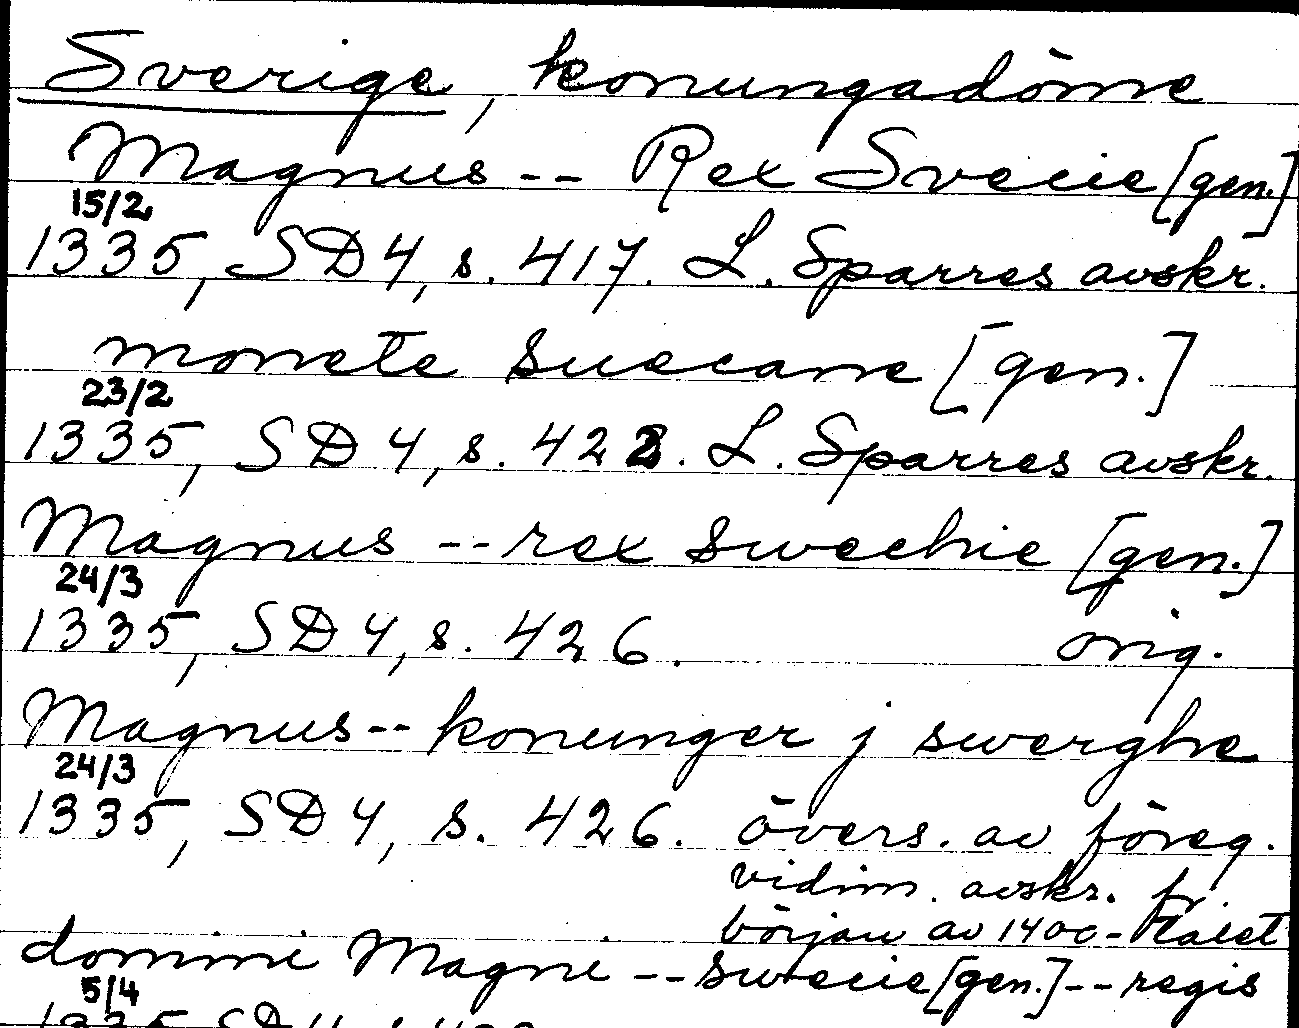 Sverige, konungadöme
Magnus -- Rex Svecie [gen.]
15/2
1335, SD 4, s. 417. L. Sparres avskr.
monete suecane [gen.]
23/2
1335, SD 4, s. 422. L. Sparres avskr.
Magnus -- rex swechie [gen.]
24/3
1335, SD 4, s. 426. orig.
Magnus -- konunger j swerghe
24/3
1335, SD 4, s. 426. övers. av föreg.
vidim. avskr. fr.
början av 1400-talet
domini Magni -- swecie [gen.] -- regis
5/4
1335, SD 4, s.